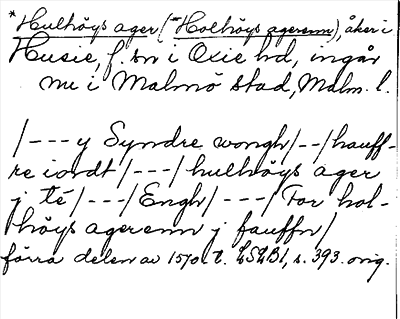 * Hulhöys ager (*Holhöys agerenn), åker i
Husie, f. sn i Oxie hd, ingår
nu i Malmö stad, Malm. l.
/---y Syndre wongh/--/hauff-
re iordt/---/hulhöys ager
j té/---/Engh/---/For hol-
höys agerenn j fauffn/
förra delen av 1570-t. LSLB1, s. 393. orig.